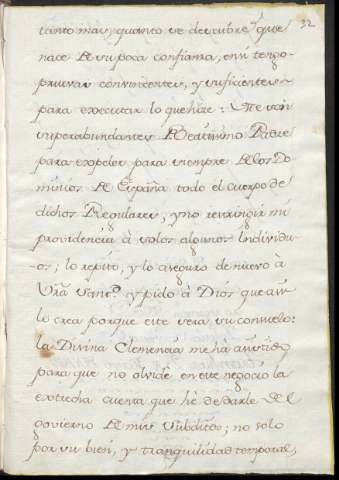 32
tanto mas, quanto se descubre que
nace de su poca confianza, en mi tengo
pruevas convincentes, y suficientes
para executar lo que hice: Me son
superabundantes Beatissimo Padre
para expeler para siempre de los Do
minios de España todo el cuerpo de
dichos Regulares, y no restringir mi
providencia à solos algunos Individu-
os; lo repito, y lo aseguro de nuevo à
Vrã Santd. y pido à Dios que assi
lo crea porque este sera su consuelo:
la Divina Clemencia me hà assistido
para que no olvide en este negocio la
extrecha cuenta que hè de darle del
govierno de mis Subditos; no solo
por su bien, y tranquilidad temporal,